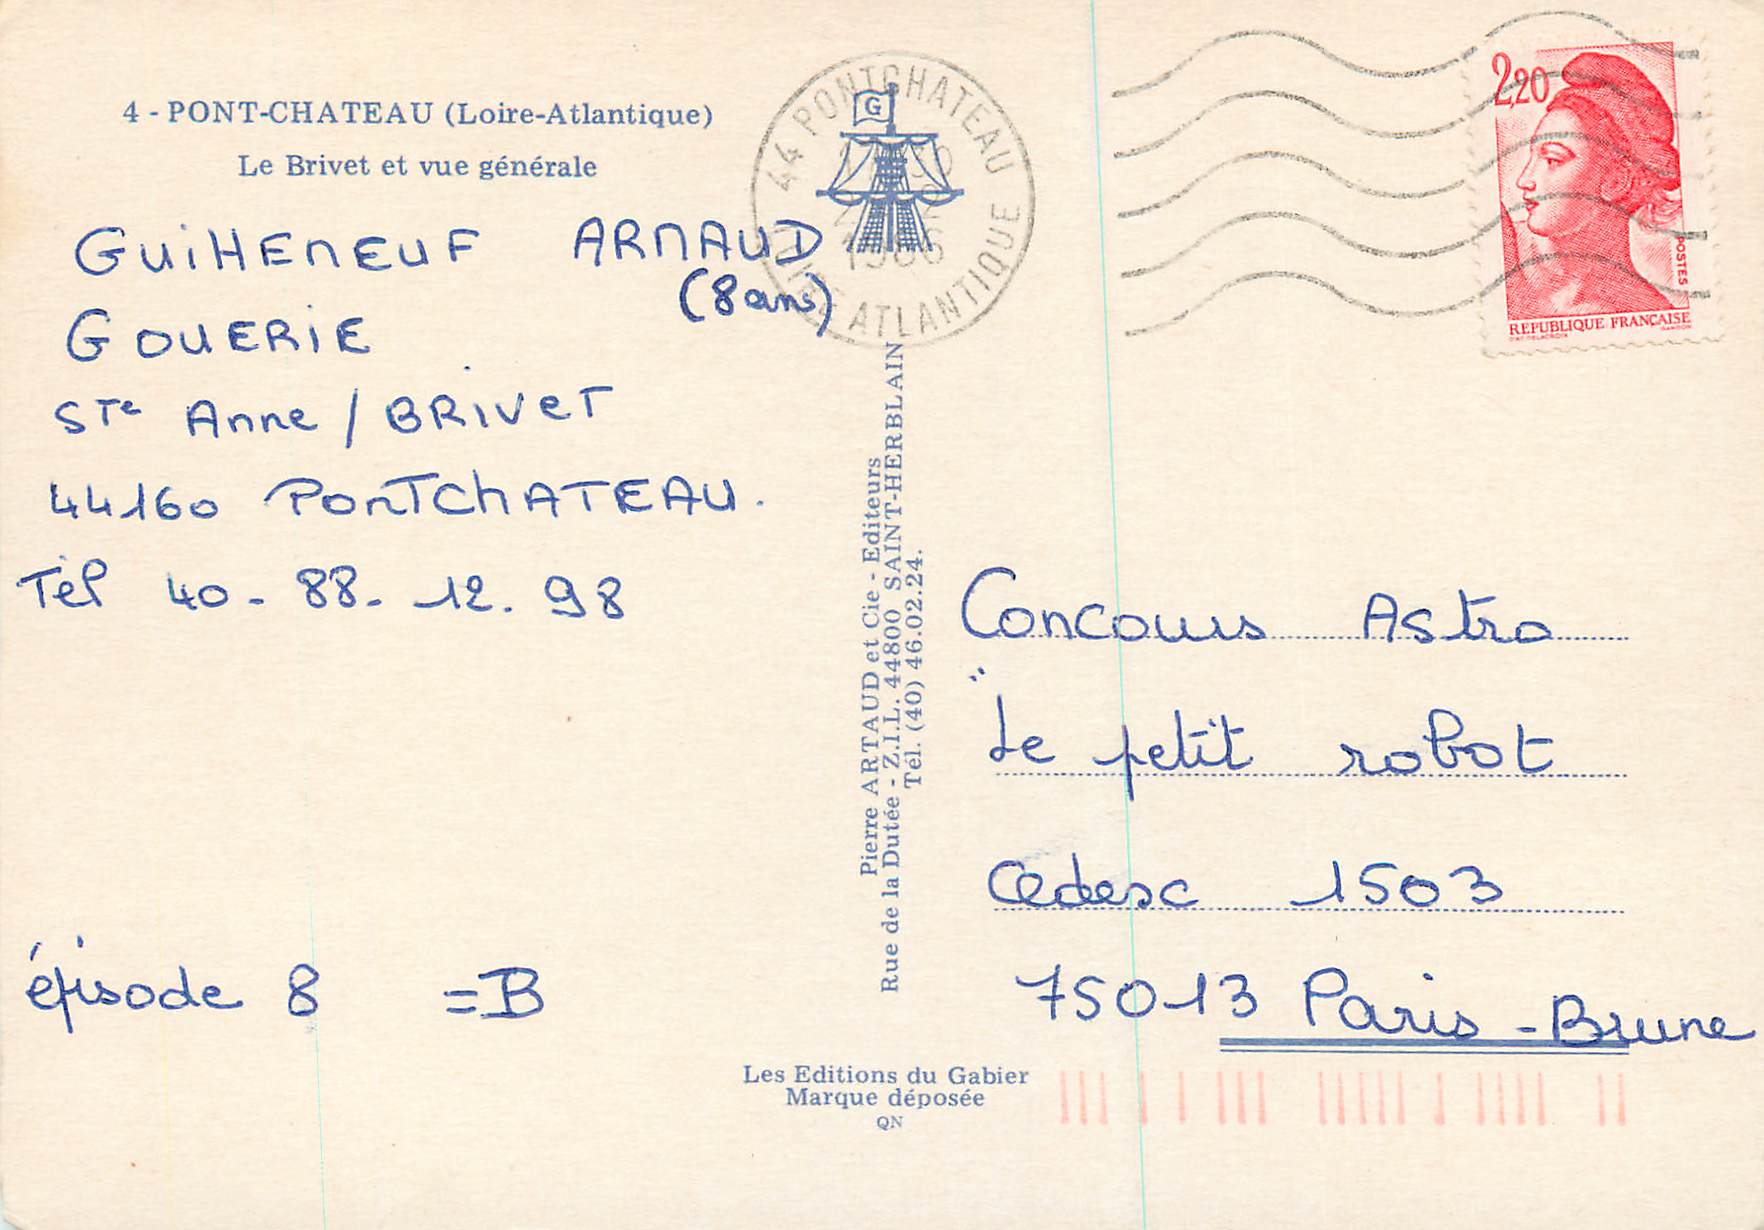 4 - PONT-CHATEAU (Loire-Atlantique)
Le Brivet et vue générale
GUiHENEUF ARNAUD
(8 ans)
GOUERIE
STe Anne / BRIVET
44160 PONTChATEAU.
Tél 40 - 88 - 12. 98
épisode 8 = B
44 PONTCHATEAU
ATLANTIQUE
G
Pierre ARTAUD et Cie - Editeurs
Rue de la Dutée - Z.I.L. 44800 SAINT-HERBLAIN
Tél. (40) 46.02.24.
Les Editions du Gabier
Marque déposée
QN
2,20
POSTES
REPUBLIQUE FRANÇAISE
Concours Astro
"Le petit robot
Cedesc 1503
75013 Paris - Brune